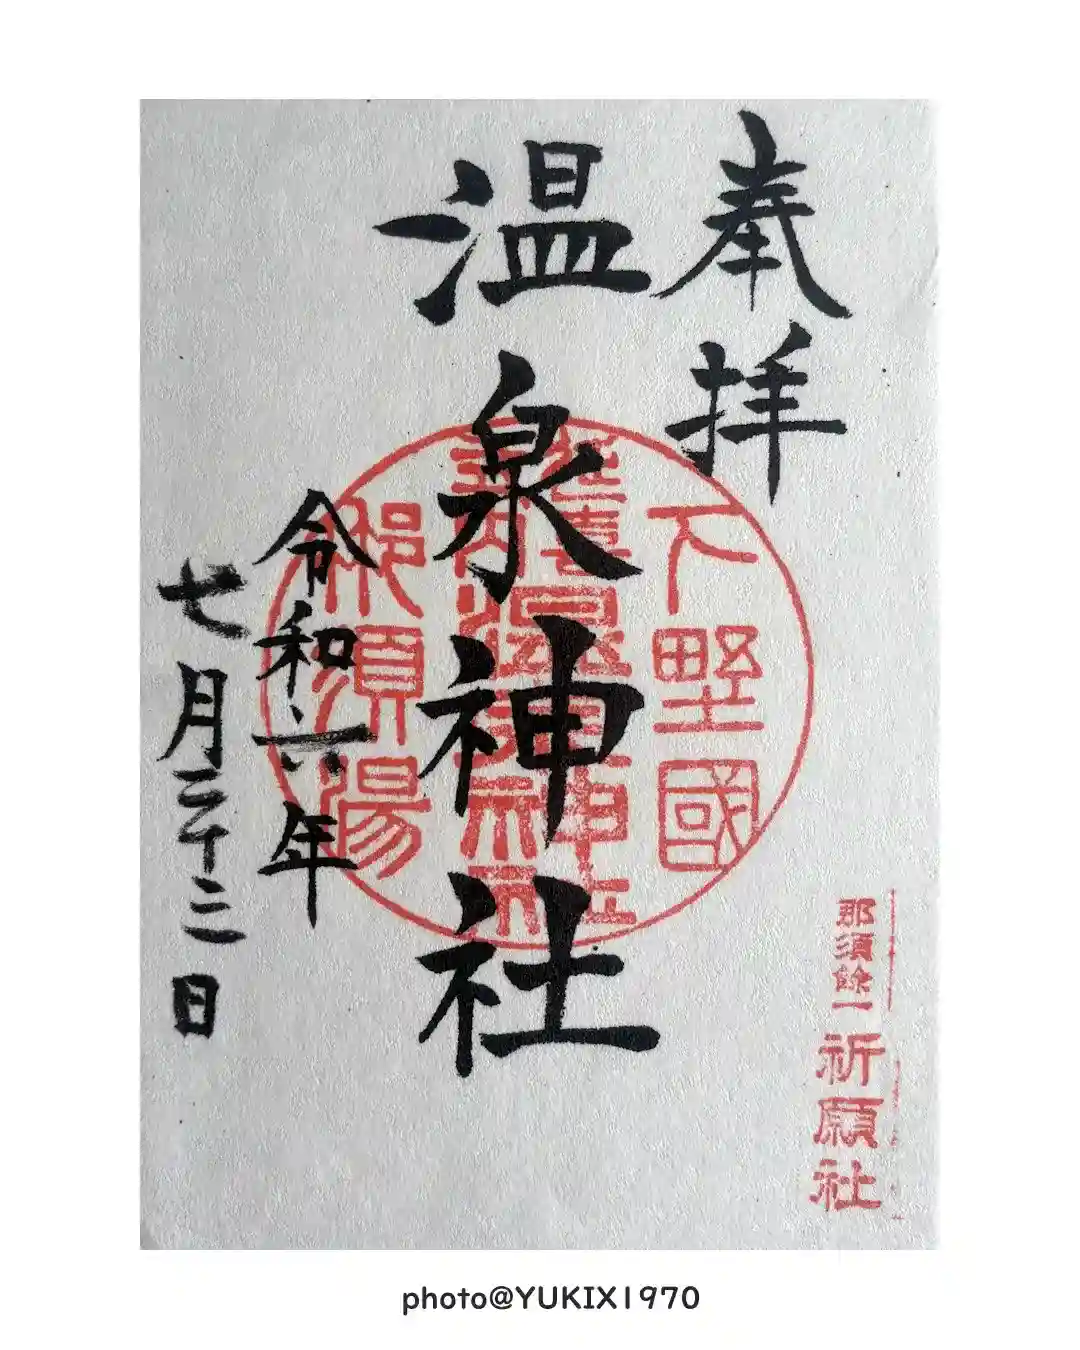 奉拝
温泉神社
令和六年
七月二十二日
下野國
延喜
温泉神社
那須湯
那須餘一
祈願社
photo@YUKIX1970